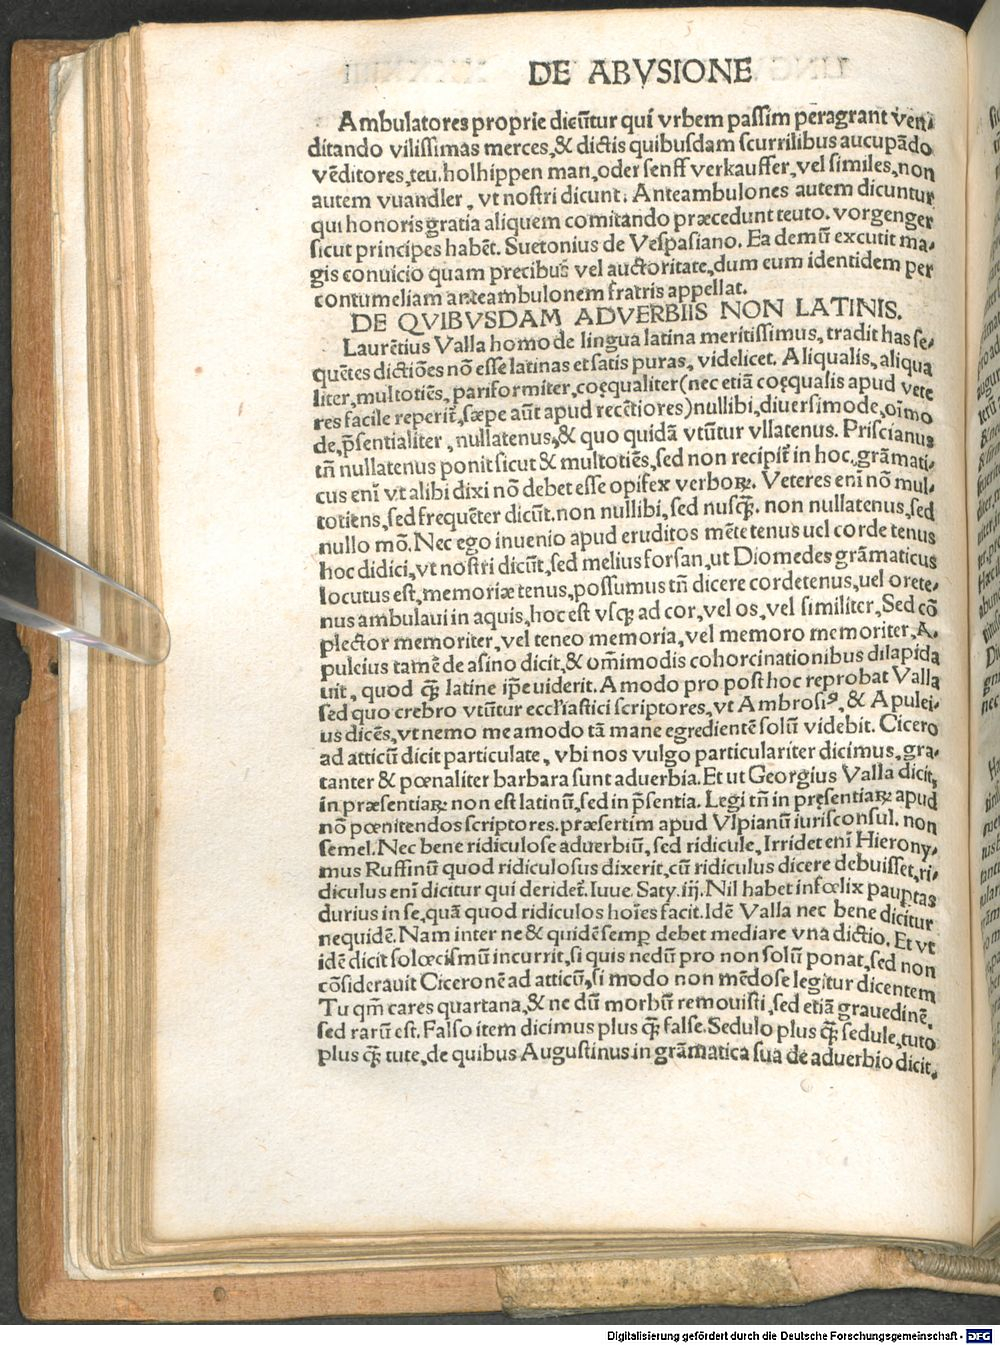 DE ABVSIONE
Ambulatores proprie dicũtur qui vrbem passim peragrant ven-
ditando vilissimas merces, & dictis quibusdam scurrilibus aucupãdo
vẽditores, teu. holhippen man, oder senff verkauffer, vel similes, non
autem vuandler, vt nostri dicunt. Anteambulones autem dicuntur
qui honoris gratia aliquem comitando præcedunt teuto. vorgenger
sicut principes habẽt. Suetonius de Vespasiano. Ea demũ excutit ma-
gis conuicio quam precibus vel auctoritate, dum eum identidem per
contumeliam anteambulonem fratris appellat.
DE QVIBVSDAM ADVERBIIS NON LATINIS.
Laurẽtius Valla homo de lingua latina meritissimus, tradit has se-
quẽtes dictiões nõ esse latinas et satis puras, videlicet. Aliqualis, aliqua
liter, multotiẽs, pariformiter, coęqualiter (nec etiã coęqualis apud vete
res facile reperit̃, sæpe aũt apud recẽtiores) nullibi, diuersimode, oĩmo
de, p̃sentialiter, nullatenus, & quo quidã vtũtur vllatenus. Priscianus
tñ nullatenus ponit sicut & multotiẽs, sed non recipit̃ in hoc, grãmati-
cus enĩ vt alibi dixi nõ debet esse opifex verboꝝ. Veteres enĩ nõ mul-
totiens, sed frequẽter dicũt. non nullibi, sed nusq̃. non nullatenus, sed
nullo mõ. Nec ego inuenio apud eruditos mẽte tenus uel corde tenus
hoc didici, vt nostri dicũt, sed melius forsan, ut Diomedes grãmaticus
locutus est, memoriæ tenus, possumus tñ dicere cordetenus, uel orete-
nus ambulaui in aquis, hoc est vsq; ad cor, vel os, vel similiter, Sed cõ
plector memoriter, vel teneo memoria, vel memoro memoriter, A-
puleius tamẽ de asino dicit, & om̃imodis cohorcinationibus dilapida
uit, quod q̃ latine ip̃e uiderit. Amodo pro post hoc reprobat Valla
sed quo crebro vtũtur eccl'iastici scriptores, vt Ambrosiꝰ, & Apulei-
us dicẽs, vt nemo me amodo tã mane egredientẽ solũ videbit. Cicero
ad atticũ dicit particulate, vbi nos vulgo particulariter dicimus, gra-
tanter & pœnaliter barbara sunt aduerbia. Et ut Georgius Valla dicit,
in præsentiaꝝ non est latinũ, sed in p̃sentia. Legi tñ in pręsentiaꝝ apud
nõ pœnitendos scriptores. præsertim apud Vlpianũ iurisconsul. non
semel. Nec bene ridiculose aduerbiũ, sed ridicule, Irridet enĩ Hierony-
mus Ruffinũ quod ridiculosus dixerit, cũ ridiculus dicere debuisset, ri-
diculus enĩ dicitur qui deridet̃. Iuue. Saty. iij. Nil habet infœlix pauꝑtas
durius in se, quã quod ridiculos hoĩes facit. Idẽ Valla nec bene dicitur
nequidẽ. Nam inter ne & quidẽ semꝑ debet mediare vna dictio. Et vt
idẽ dicit solœcismũ incurrit, si quis nedũ pro non solũ ponat, sed non
cõsiderauit Ciceronẽ ad atticũ, si modo non mẽdose legitur dicentem
Tu qm̃ cares quartana, & ne dũ morbũ remouisti, sed etiã grauedinẽ.
sed rarũ est. Falso item dicimus plus q̃ false. Sedulo plus q̃ sedule, tuto
plus q̃ tute, de quibus Augustinus in grãmatica sua de aduerbio dicit.
Digitalisierung gefördert durch die Deutsche Forschungsgemeinschaft - DFG